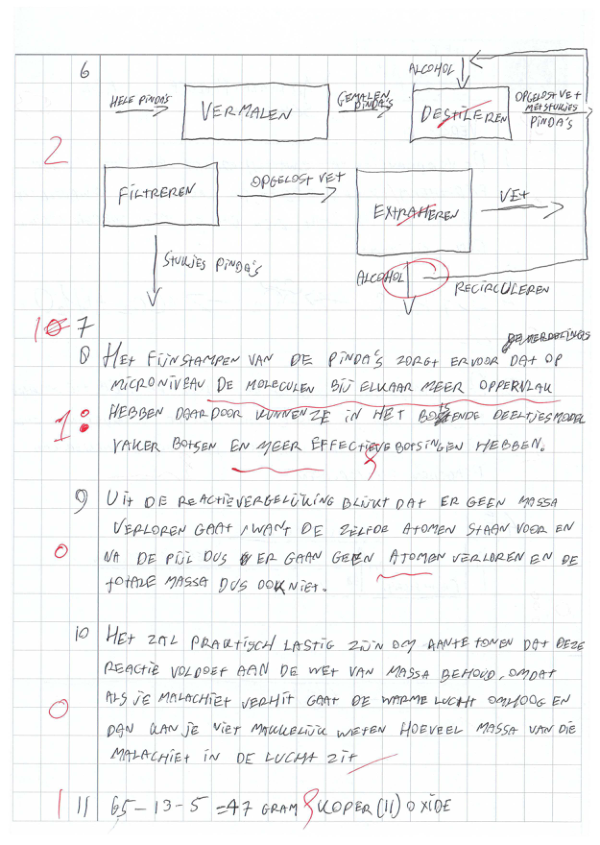 6
HELE PINDA'S
VERMALEN
GEMALEN PINDA'S
ALCOHOL
DESTILEREN
OPGELOST VET
MET STUKJES
PINDA'S
2
FILTREREN
OPGELOST VET
EXTRAHEREN
VET
STUKJES PINDA'S
ALCOHOL
RECIRCULEREN
7
8 HET FIJNSTAMPEN VAN DE PINDA'S ZORGT ERVOOR DAT OP
MICRONIVEAU DE MOLECULEN BIJ ELKAAR MEER OPPERVLAK
1 HEBBEN DAARDOOR KUNNEN ZE IN HET BOTSENDE DEELTJESMODEL
VAKER BOTSEN EN MEER EFFECTIEVE BOTSINGEN HEBBEN.
9 UIT DE REACTIEVERGELIJKING BLIJKT DAT ER GEEN MASSA
VERLOREN GAAT, WANT DE ZELFDE ATOMEN STAAN VOOR EN
0 NA DE PIJL DUS ER GAAN GEEN ATOMEN VERLOREN EN DE
TOTALE MASSA DUS OOK NIET.
10 HET ZAL PRAKTISCH LASTIG ZIJN OM AANTE TONEN DAT DEZE
REACTIE VOLDOET AAN DE WET VAN MASSA BEHOUD, OMDAT
0 ALS JE MALACHIET VERHIT GAAT DE WARME LUCHT OMHOOG EN
DAN KAN JE NIET MAKKELIJK WETEN HOEVEEL MASSA VAN DIE
MALACHIET IN DE LUCHT ZIT
1 11 65-13-5 = 47 GRAM KOPER(II) OXIDE